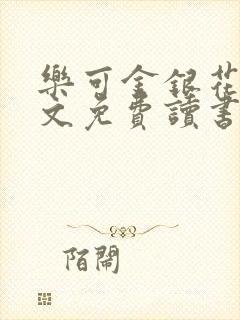 樂可金銀花
文免費讀書
陌鬧